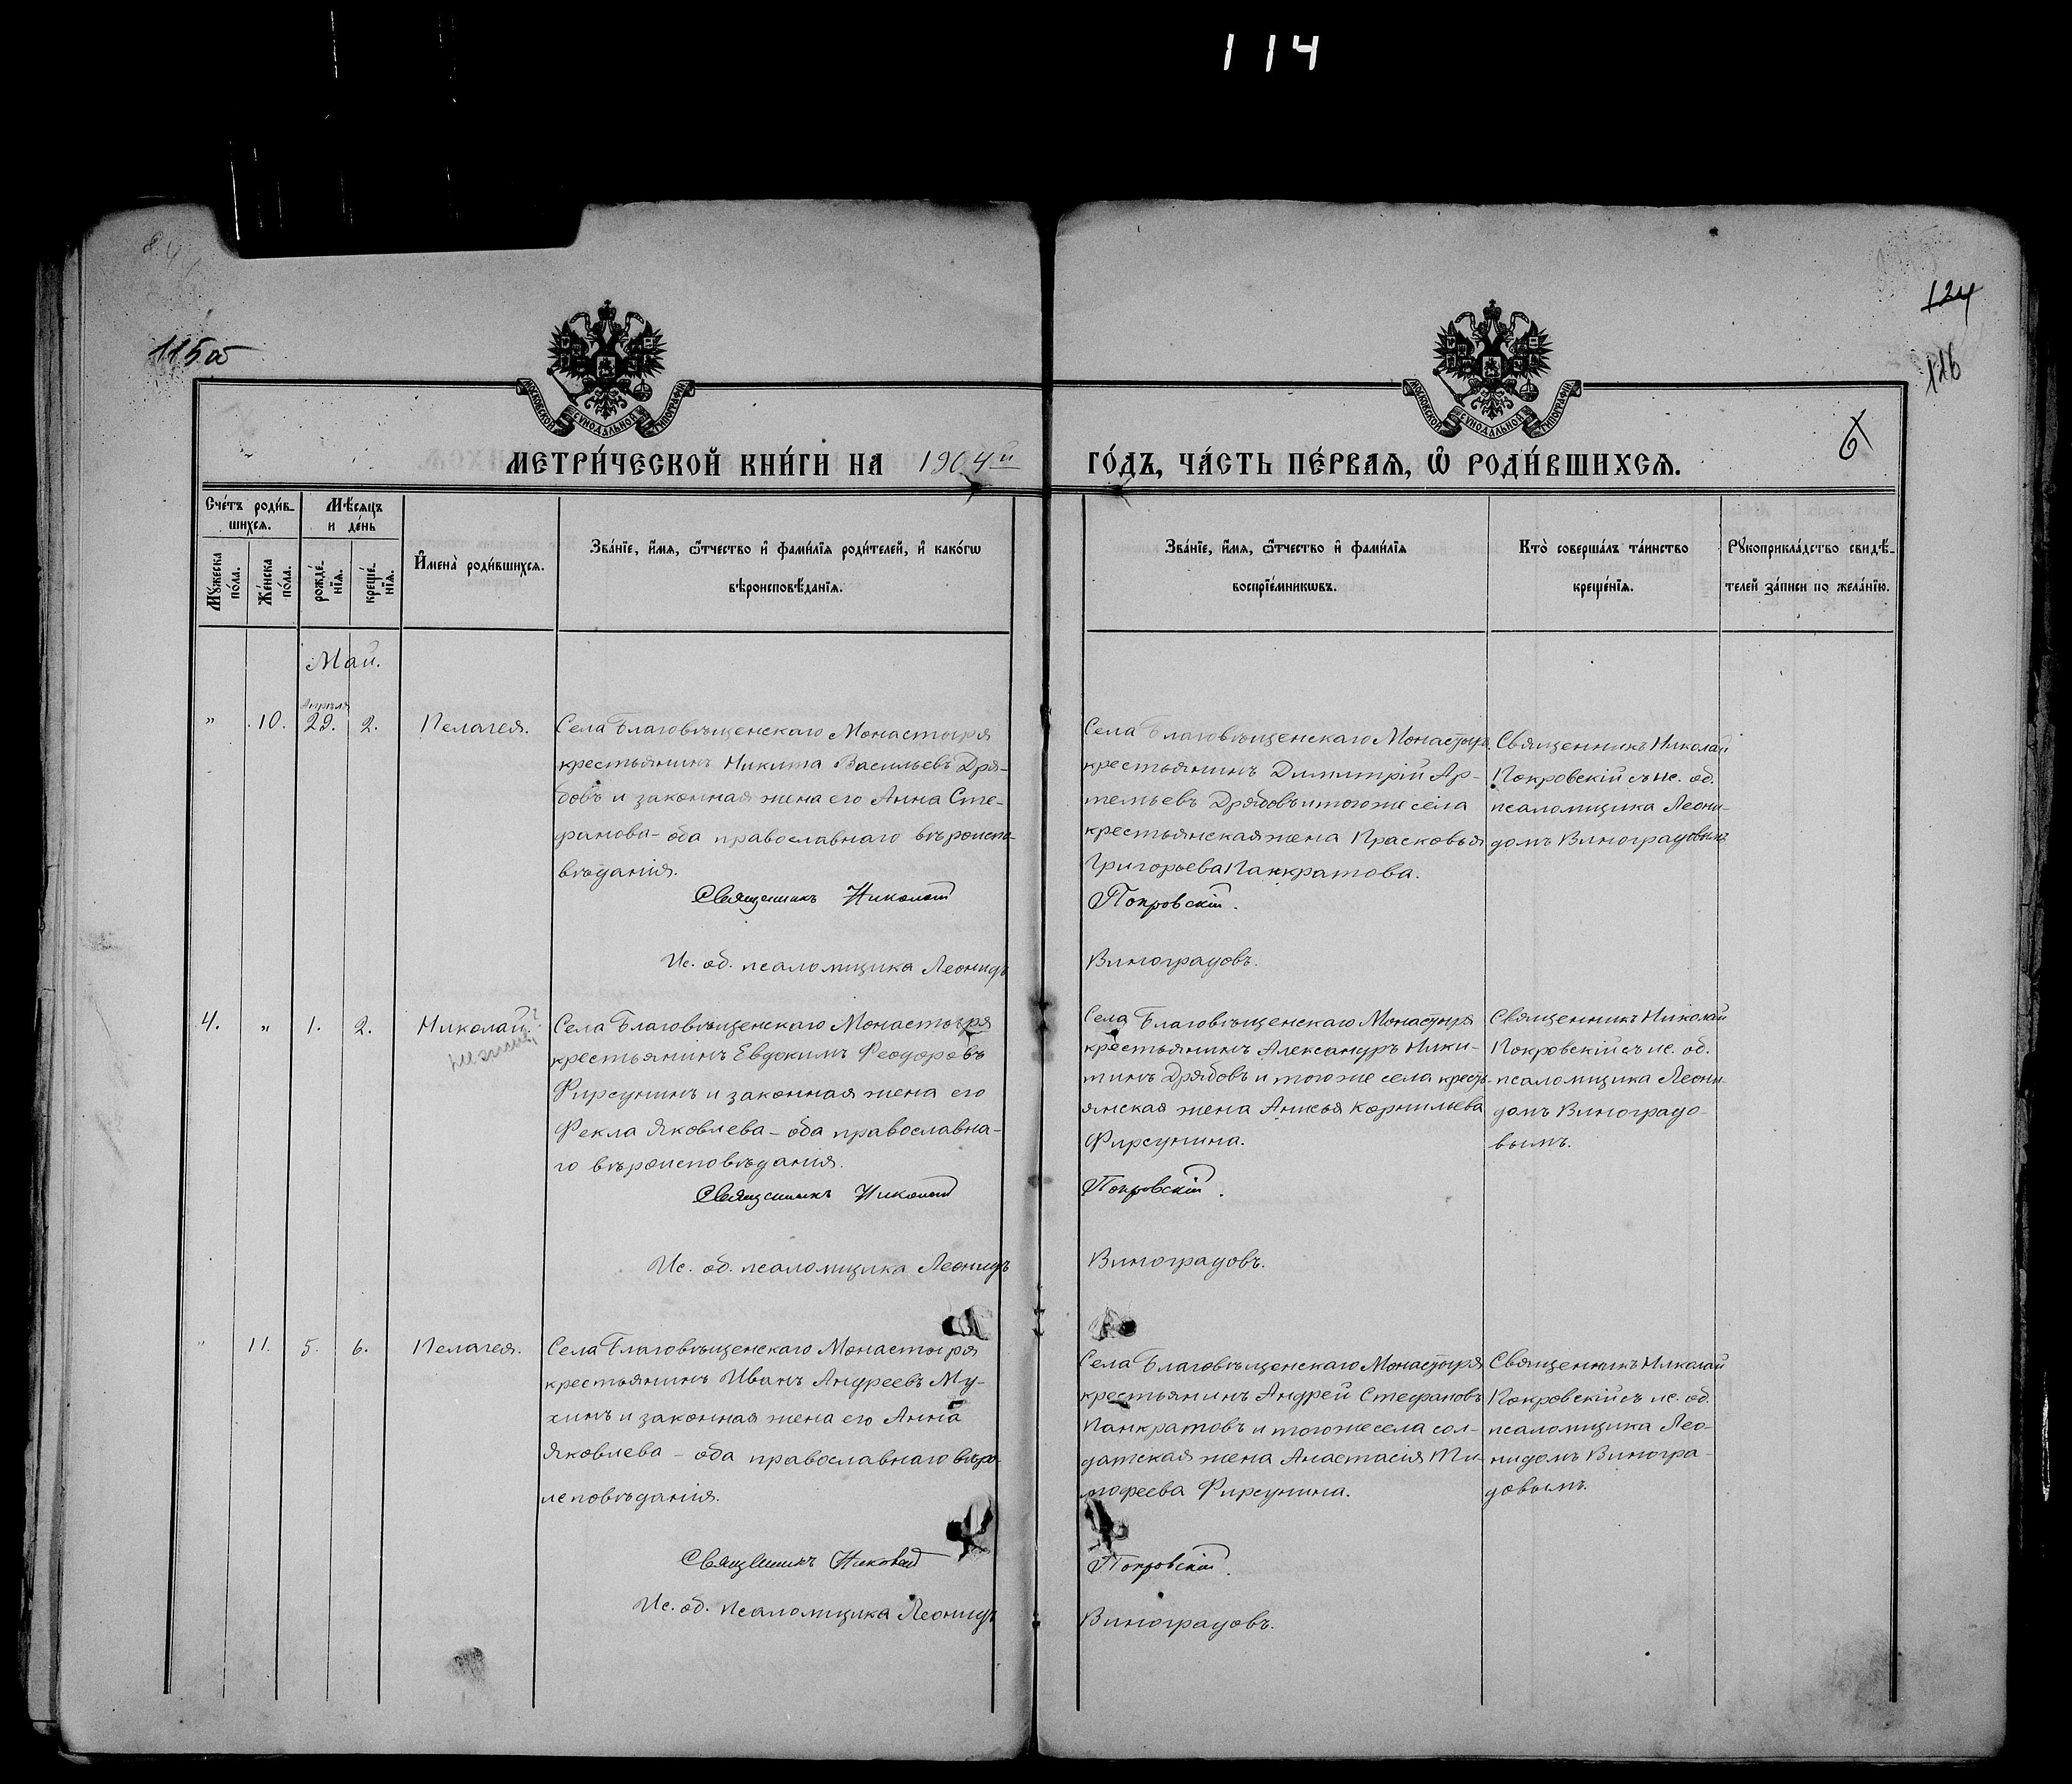 114
124
115об
116
6
МОСКОВСКОЙ СУНОДАЛЬНОЙ ТИПОГРАФІИ
МОСКОВСКОЙ СУНОДАЛЬНОЙ ТИПОГРАФІИ
МЕТРИ́ЧЕСКОЙ КНИ́ГИ НА 1904й
ГО́ДЪ, ЧА́СТЬ ПЕ́РВАѦ, Ѽ РОДИ́ВШИХСѦ.
Сче́тъ роди́в-
шихсѧ.
Мѣсѧцъ
и де́нь
Мꙋжеска по́ла.
Же́нска по́ла.
рожде́-
нїѧ.
креще́-
нїѧ.
И҆мена̀ роди́вшихсѧ.
Зва́нїе, и҆́мѧ, ѻ҆́тчество и҆ фами́лїѧ роди́телей, и҆ како́гѡ
вѣроисповѣ́данїѧ.
Зва́нїе, и҆́мѧ, ѻ҆́тчество и҆ фами́лїѧ
воспрїе́мникѡвъ.
Кто̀ соверша́лъ та́инство
креще́нїѧ.
Рꙋкоприкла́дство свидѣ́-
телей за́писи по жела́нїю.
Май.
" 10. Апрѣля 29. 2. Пелагея.
Села Благовѣщенскаго Монастыря
крестьянинъ Никита Васильевъ Дря-
бовъ и законная жена его Анна Сте-
фанова - оба православнаго вѣроиспо-
вѣданія.
Священникъ Николай
Ис. об. псаломщика Леонидъ
Села Благовѣщенскаго Монастыря
крестьянинъ Димитрій Ар-
темьевъ Дрябовъ и того же села
крестьянская жена Прасковья
Григорьева Панкратова.
Покровскій.
Виноградовъ.
Священникъ Николай
Покровскій съ ис. об.
псаломщика Леони-
домъ Виноградовымъ
4. " 1. 2. Николай.
Села Благовѣщенскаго Монастыря
крестьянинъ Евдокимъ Феодоровъ
Фирсунинъ и законная жена его
Фекла Яковлева - оба православна-
го вѣроисповѣдания.
Священникъ Николай
Ис. об. псаломщика Леонидъ
Села Благовѣщенскаго Монастыря
крестьянинъ Александръ Ники-
тинъ Дрябовъ и того же села кресть-
янская жена Анисья Корнильева
Фирсунина.
Покровскій.
Виноградовъ.
Священникъ Николай
Покровскій съ ис. об.
псаломщика Леони-
домъ Виноградо-
вымъ.
" 11. 5. 6. Пелагея.
Села Благовѣщенскаго Монастыря
крестьянинъ Иванъ Андреевъ Му-
хинъ и законная жена его Анна
Яковлева - оба православнаго вѣро-
исповѣданія.
Священникъ Николай
Ис. об. псаломщика Леонидъ
Села Благовѣщенскаго Монастыря
крестьянинъ Андрей Стефановъ
Панкратовъ и того же села сол-
датская жена Анастасія Ти-
мофеева Фирсунина.
Покровскій.
Виноградовъ.
Священникъ Николай
Покровскій съ ис. об.
псаломщика Лео-
нидомъ Виногра-
довымъ.